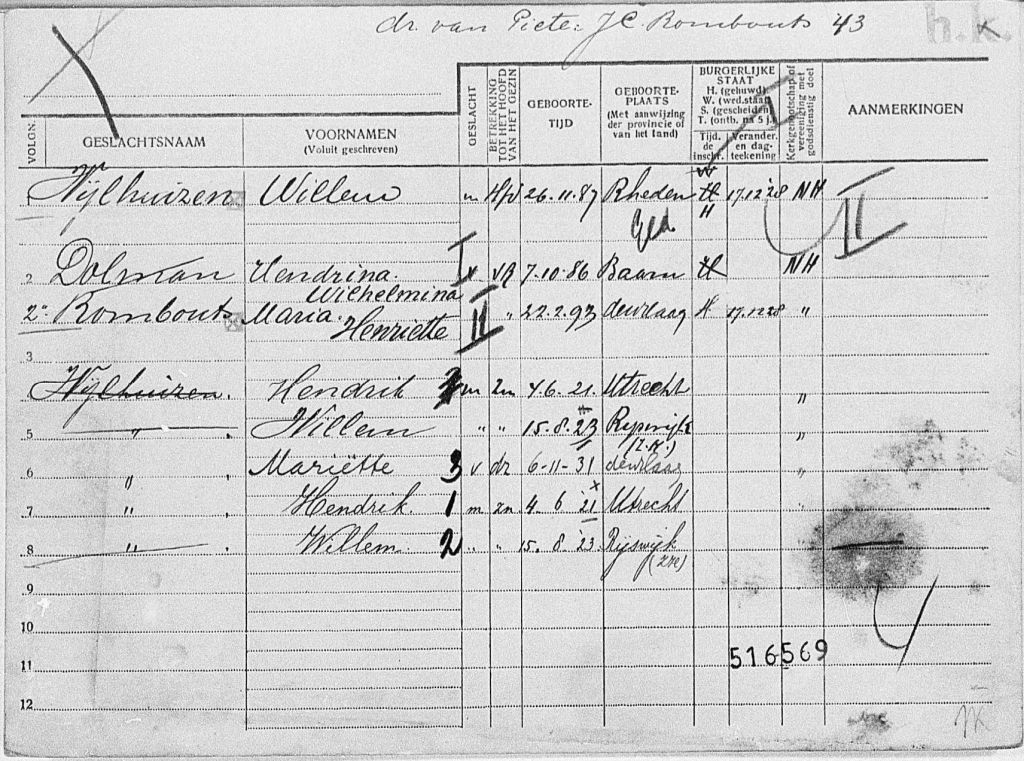 dr. van Pieter J C Rombouts 43
h.k.
VOLGN. GESLACHTSNAAM VOORNAMEN (Voluit geschreven) GESLACHT BETREKKING TOT HET HOOFD VAN HET GEZIN GEBOORTE-TIJD GEBOORTE-PLAATS (Met aanwijzing der provincie of van het land) BURGERLIJKE STAAT H. (gehuwd) W. (wed.staat) S. (gescheiden) T. (ontb. na 5 j.) Tijd. de inschr. Verander. en dag-teekening Kerkgenootschap of vereeniging met godsdienstig doel AANMERKINGEN
1 Wijlhuizen Willem m Hfd 26.11.87 Rheden W H 17.12.28 NH II
H
Gld
2 Dolman Hendrina I v vr 7.10.86 Baarn H NH
Wilhelmina
2e Rombouts Maria II " 22.2.93 den Haag H 17.12.28 "
Henriette
3
Wijlhuizen. Hendrik m zn 4.6.21 Utrecht "
5 " Willem " " 15.8.23 Rijswijk "
(Z.H.)
6 " Mariëtte 3 v dr 6-11-31 den Haag "
7 " Hendrik. 1 m zn 4 6 '21 Utrecht "
8 " Willem. 2 " " 15. 8. '23 Rijswijk
(ZH)
9
10
516569
11
12